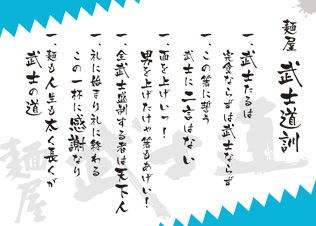 麺屋 武士道訓
一、武士たるは
完食ならずは武士ならず
一、この箸に誓う
武士に二言はない
一、面を上げいっ!
男を上げたけりゃ箸もあげい!
一、全武士盛制する者は天下人
一、礼に始まり礼に終わる
この一杯に感謝なり
一、麺も人生も太く長くが
武士の道
麺屋 武士